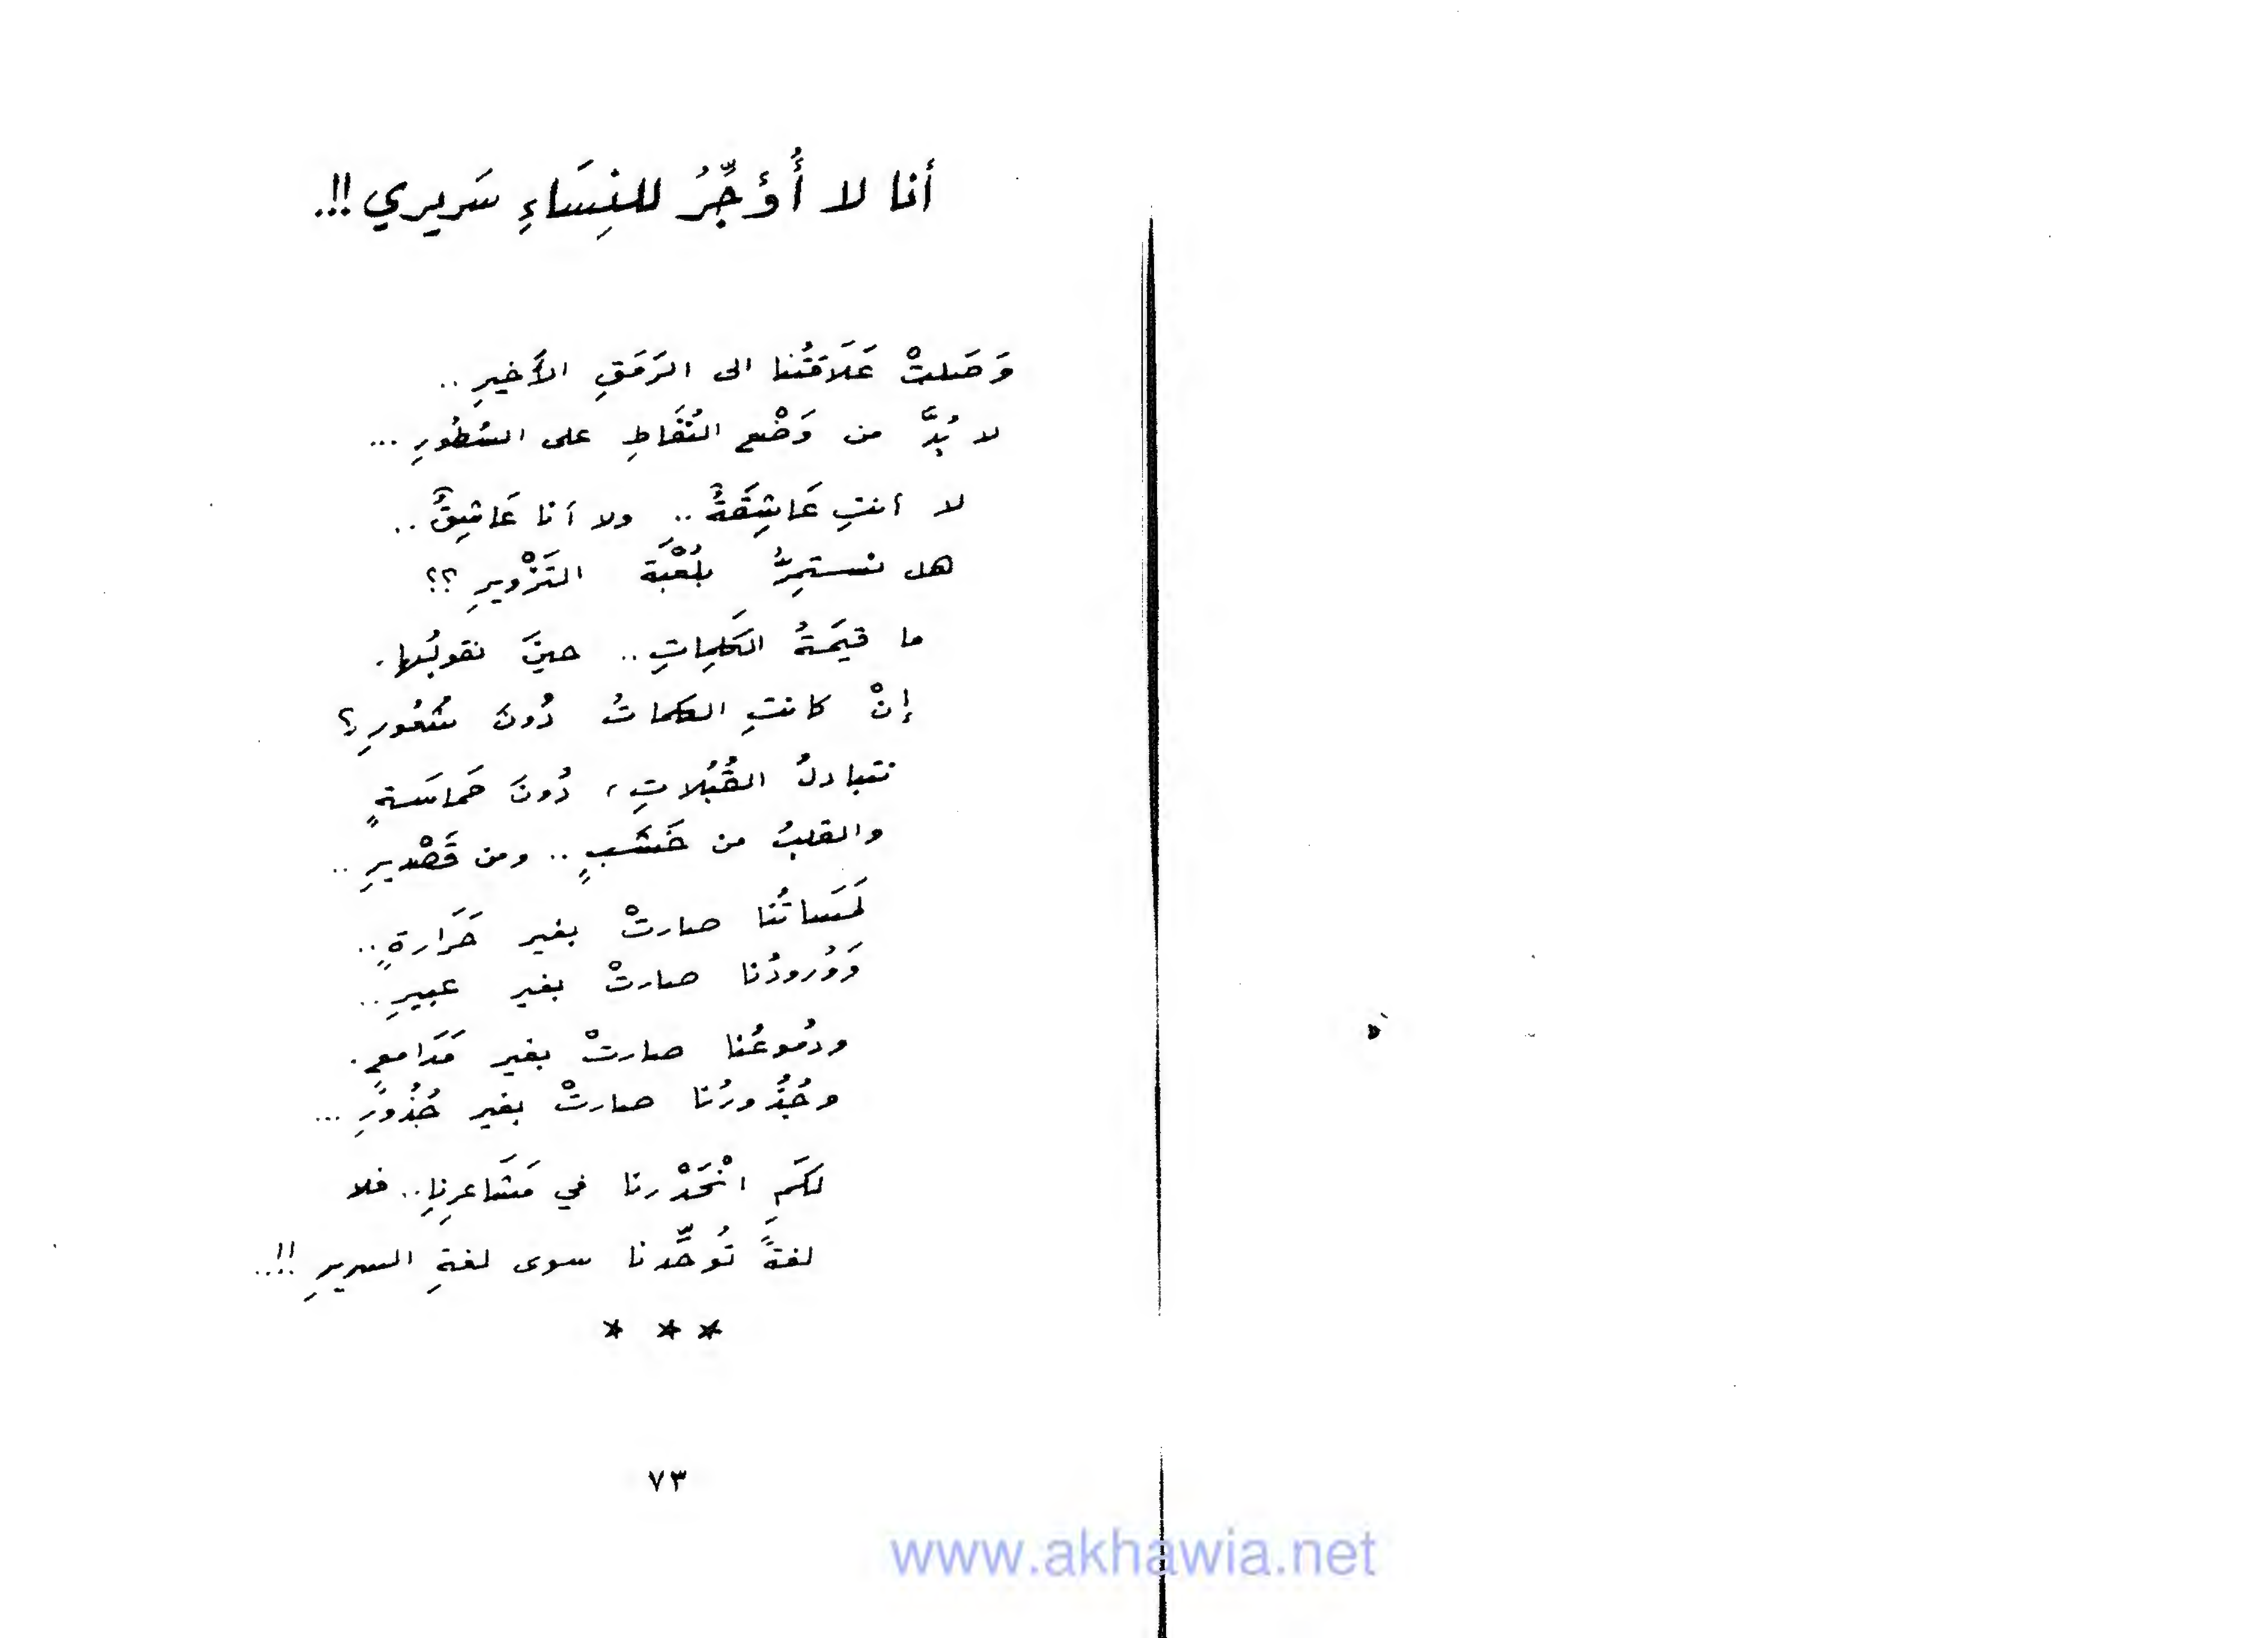 أنا لا أُؤجِّرُ للنِسَاءِ سَريري !!.
وَصَلتْ عَلَاقَتُنا الى الرَمَقِ الأَخيرِ ..
لا بُدَّ من وَضْعِ النُقَاطِ على السُطُورِ ...
لا أنتِ عَاشِقَةٌ .. ولا أنا عَاشِقٌ ..
هل نستمِرُّ بلُعْبَة التَزْويرِ ؟؟
ما قيمَةُ الكَلِماتِ .. حينَ نقولُها،
إنْ كانتِ الكلماتُ دُونَ شُعُورِ ؟
نتبادلُ القُبُلاتِ ، دُونَ حَماسَةٍ
والقلبُ من خَشَبٍ .. ومن قَصْديرِ ..
لَمَساتُنا صارتْ بغير حَرَارةٍ ..
وَوُرودُنا صارتْ بغير عبيرِ ..
ودُموعُنا صارتْ بغير مَدَامعٍ .
وجُذُورُنا صارتْ بغير جُذُورِ ...
لكَمِ انْحَدْرنا في مَشَاعرِنا .. فلا
لغةً تُوحِّدنا سوى لغةِ السريرِ !!..
* * *
٧٣
www.akhawia.net